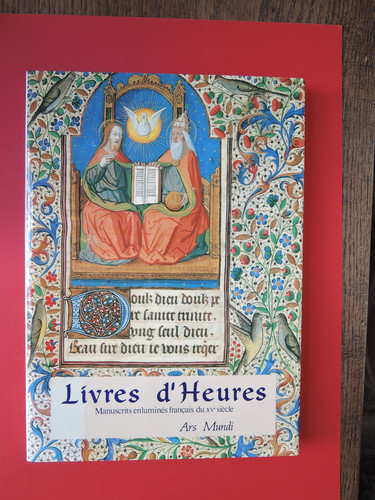 Doulx dieu doulx pe
re saincte trinite.
Vng seul dieu.
Beau sire dieu ie vous
Livres d'Heures
Manuscrits enluminés français du XVe siècle
Ars Mundi